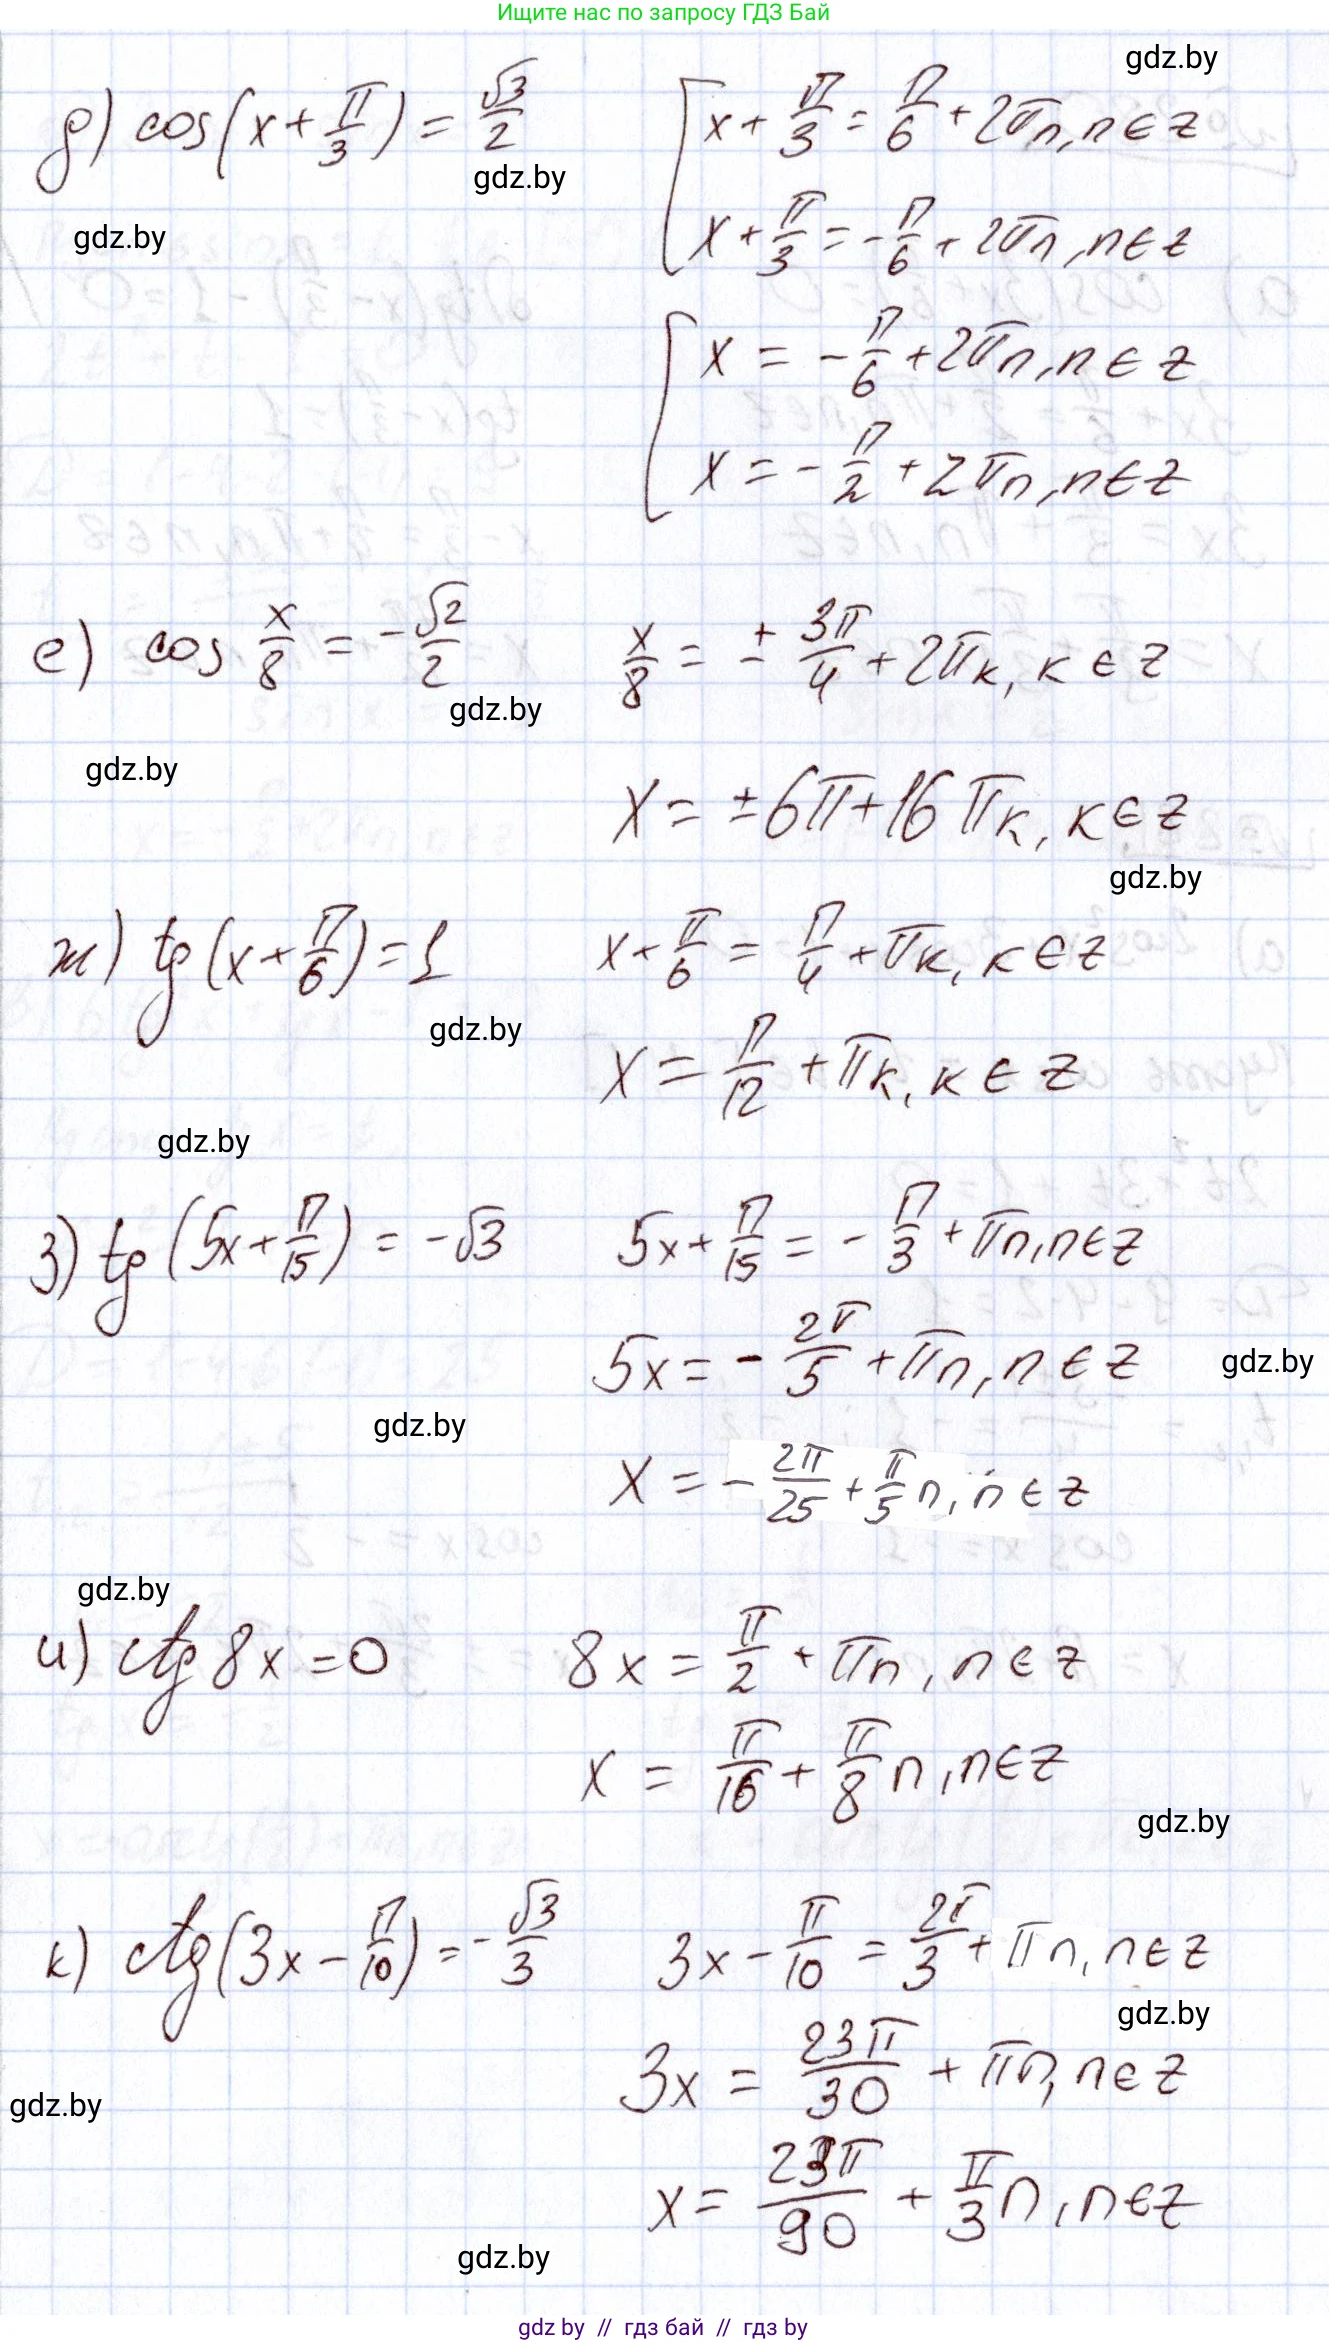 Ищите нас по запросу ГДЗ Бай
gdz.by
д) cos(x + π/3) = √3/2 [ x + π/3 = π/6 + 2πn, n ∈ z
gdz.by
gdz.by
x + π/3 = -π/6 + 2πn, n ∈ z
[ x = -π/6 + 2πn, n ∈ z
x = -π/2 + 2πn, n ∈ z
е) cos x/8 = -√2/2 x/8 = ± 3π/4 + 2πк, к ∈ z
gdz.by
gdz.by
x = ±6π + 16πк, к ∈ z
gdz.by
ж) tg(x + π/6) = 1 x + π/6 = π/4 + πк, к ∈ z
gdz.by
x = π/12 + πк, к ∈ z
gdz.by
з) tg(5x + π/15) = -√3 5x + π/15 = -π/3 + πn, n ∈ z
5x = -2π/5 + πn, n ∈ z
gdz.by
gdz.by
x = -2π/25 + π/5 n, n ∈ z
gdz.by
и) ctg 8x = 0 8x = π/2 + πn, n ∈ z
x = π/16 + π/8 n, n ∈ z
gdz.by
к) ctg(3x - π/10) = -√3/3 3x - π/10 = 2π/3 + πn, n ∈ z
gdz.by
3x = 23π/30 + πn, n ∈ z
gdz.by
x = 23π/90 + π/3 n, n ∈ z
gdz.by
gdz by // гдз бай // gdz by